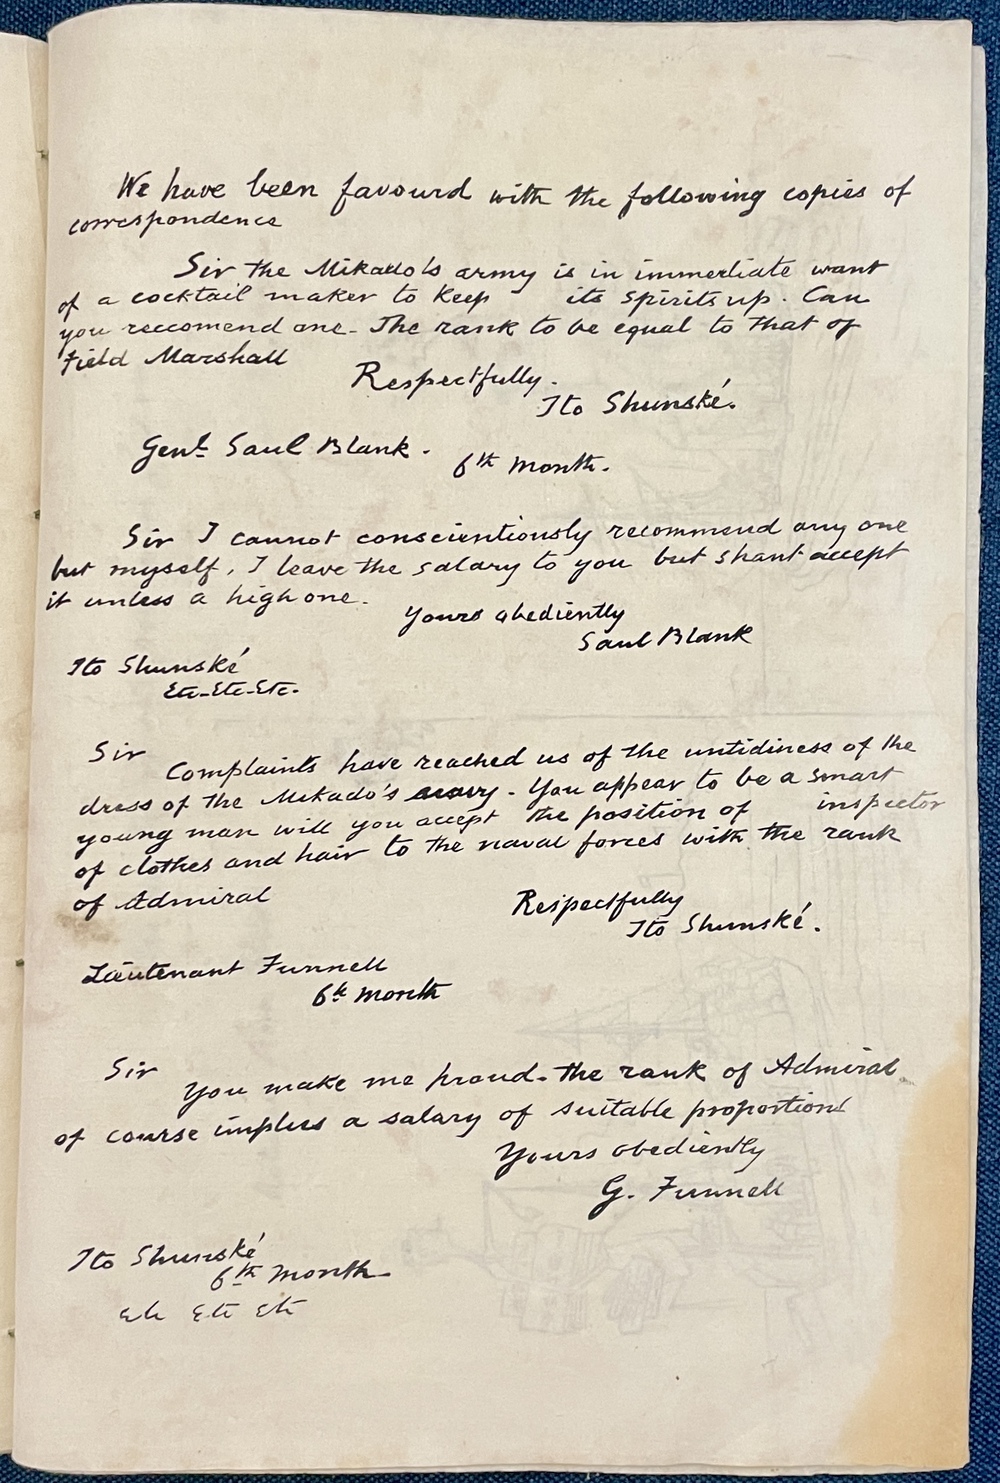 We have been favourd with the following copies of
correspondence
Sir the Mikado's army is in immediate want
of a cocktail maker to keep its spirits up. Can
you reccomend one. The rank to be equal to that of
Field Marshall
Respectfully.
Ito Shunské.
Genl. Saul Blank.
6th month.
Sir I cannot conscientiously recommend any one
but myself, I leave the salary to you but shant accept
it unless a high one.
Yours obediently
Saul Blank
Ito Shunské
Etc-Etc-Etc.
Sir
Complaints have reached us of the untidiness of the
dress of the Mikado's navy. You appear to be a smart
young man will you accept the position of inspector
of clothes and hair to the naval forces with the rank
of Admiral
Respectfully
Ito Shunské.
Lieutenant Funnell
6th month
Sir
You make me proud. the rank of Admiral
of course implies a salary of suitable proportions
Yours obediently
G. Funnell
Ito Shunské
6th month
Etc Etc Etc